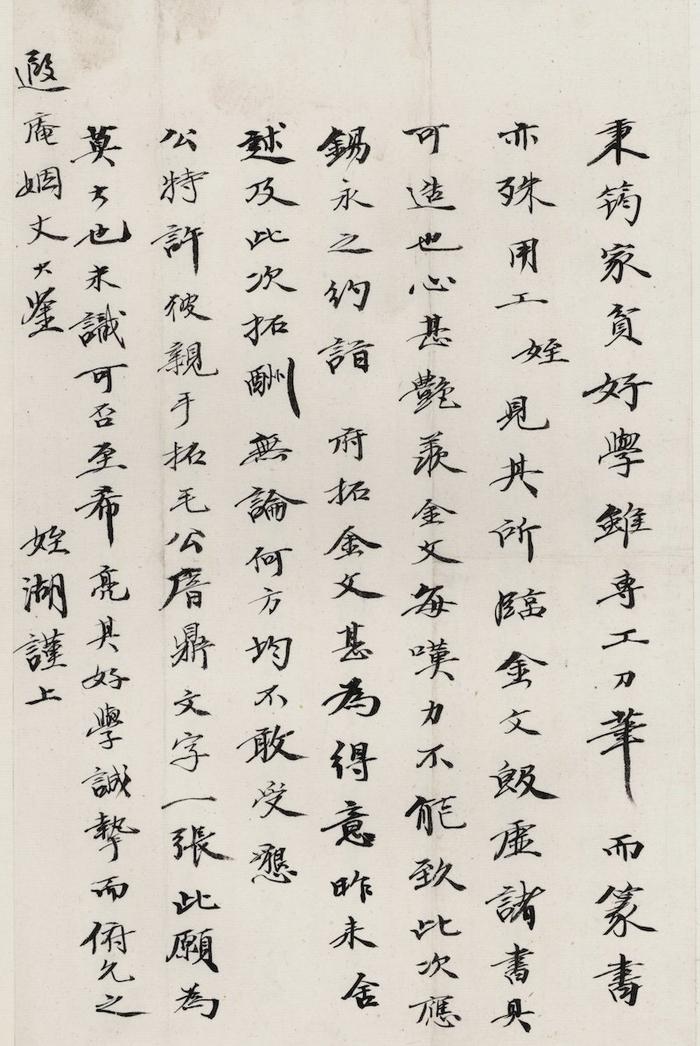 秉筠家貧好學雖專工刀筆而篆書
亦殊用工姪見其所臨金文殷虛諸書具
可造也心甚艷羨金文每嘆力不能致此次應
錫永之約詣府拓金文甚為得意昨来舍
述及此次拓酬無論何方均不敢受懇
公特許彼親手拓毛公㫿鼎文字一張此願為
莫大也未識可否至希亮其好學誠摯而俯允之
遐庵姻丈大鑒
姪湖謹上